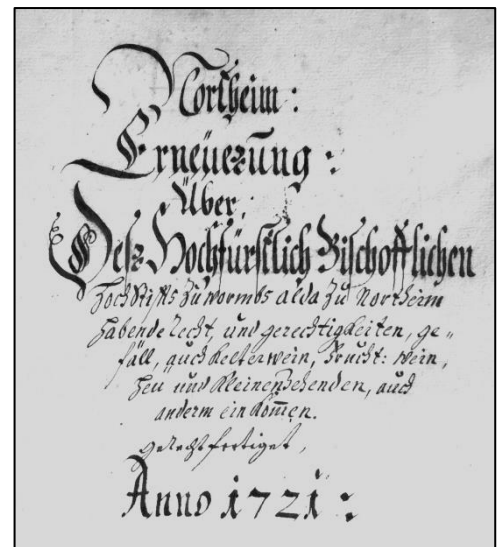 Northeim :
Erneüerung :
Über,
Desz Hochfürstlich Bischofflichen
Hochstiffts zu wormbs alda zu Northeim
habende recht, und gerechtigkeiten, ge„
fäll, auch kelterwein, frucht: wein,
heü und kleinen zehenden, auch
anderm einkom̄en.
Anno 1721 :